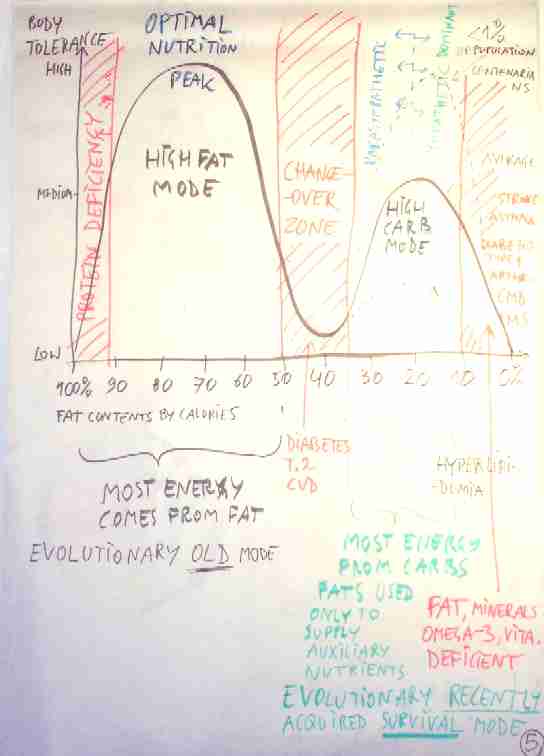 BODY
TOLERANCE
HIGH
MEDIUM
LOW
OPTIMAL
NUTRITION
PEAK
HIGH FAT
MODE
PROTEIN DEFICIENCY
CHANGE-
OVER
ZONE
HIGH
CARB
MODE
DOMINANT
<1%
OF POPULATION
CENTENARIA
NS
AVERAGE
STROKE
ASTHMA
TYPE 1
MS
100% 90 80 70 60 50 40 30 20 10 0%
FAT CONTENTS BY CALORIES
DIABETES
T.2
CVD
HYPERLIPI-
DEMIA
MOST ENERGY
COMES FROM FAT
EVOLUTIONARY OLD MODE
MOST ENERGY
FROM CARBS
FATS USED
ONLY TO
SUPPLY
AUXILIARY
NUTRIENTS
FAT, MINERALS
OMEGA-3, VITA.
DEFICIENT
EVOLUTIONARY RECENTLY
ACQUIRED SURVIVAL MODE
5